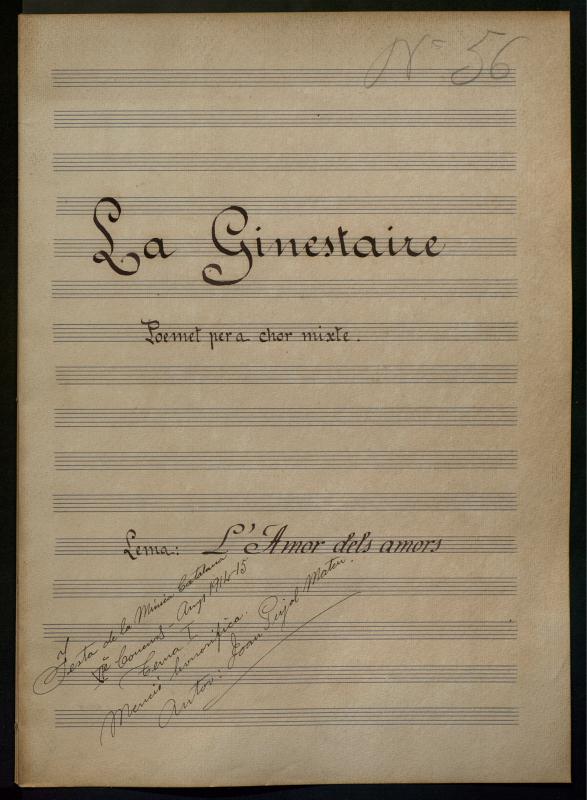 Nº 56
La Ginestaire
Poemet per a chor mixte.
Lema: L'Amor dels amors
Festa de la Música Catalana
Concurs - Any 1914-15
Tema I.
Menció honorífica.
Autor: Joan Pujol Mateu.